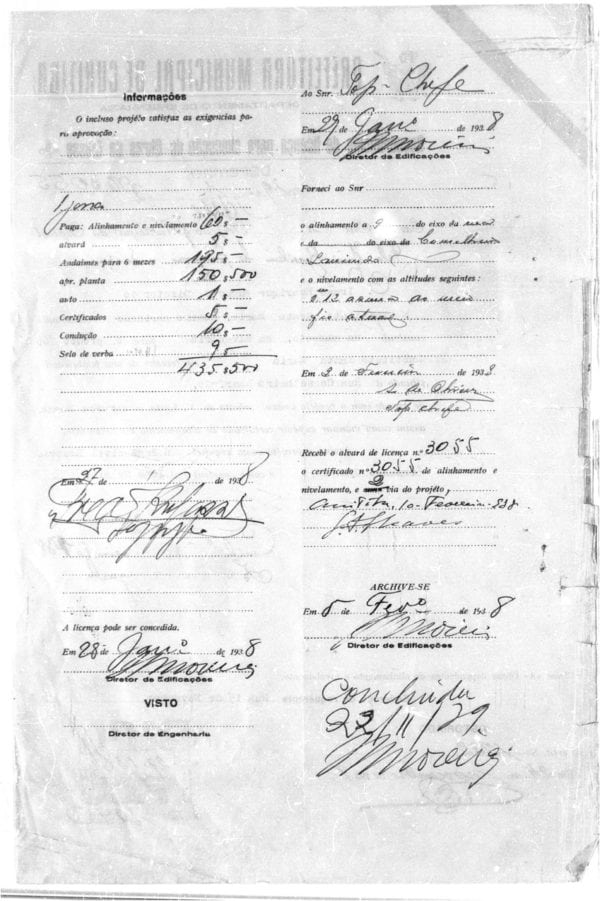 Informações
O incluso projéto satisfaz as exigencias pa-
ra aprovação:
Paga: Alinhamento e nivelamento 60$ —
alvará 5$ —
Andaimes para 6 mezes 195 —
apr. planta 150$500
auto 1$ —
Certificados 5$ —
Condução 10$ —
Selo de verba 9$
435$500
Em 27 de 1938
A licença pode ser concedida.
Em 28 de Janº de 1938
Diretor de Edificações
VISTO
Diretor de Engenharia
Ao Snr. Top-Chefe
Em 29 de Janº de 1938
Diretor de Edificações
Forneci ao Snr
o alinhamento a 9 do eixo da
e da do eixo da Conselheiro
Laurindo
e o nivelamento com as altitudes seguintes:
0.12 acima ao meio
fio atual
Em 2 de Fevereiro de 1938
Top. chefe
Recebi o alvará de licença n.º 3055
o certificado n.º 3055 de alinhamento e
nivelamento, e 2 via do projéto
Curitiba, 10 Fevereiro 938
ARCHIVE-SE
Em 5 de Fevº de 1938
Diretor de Edificações
Concluida
22/11/39